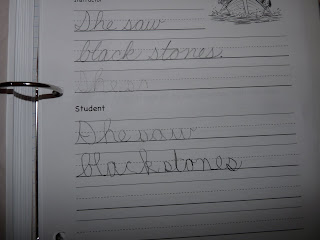 She saw
black stones.
Student
She saw
black stones